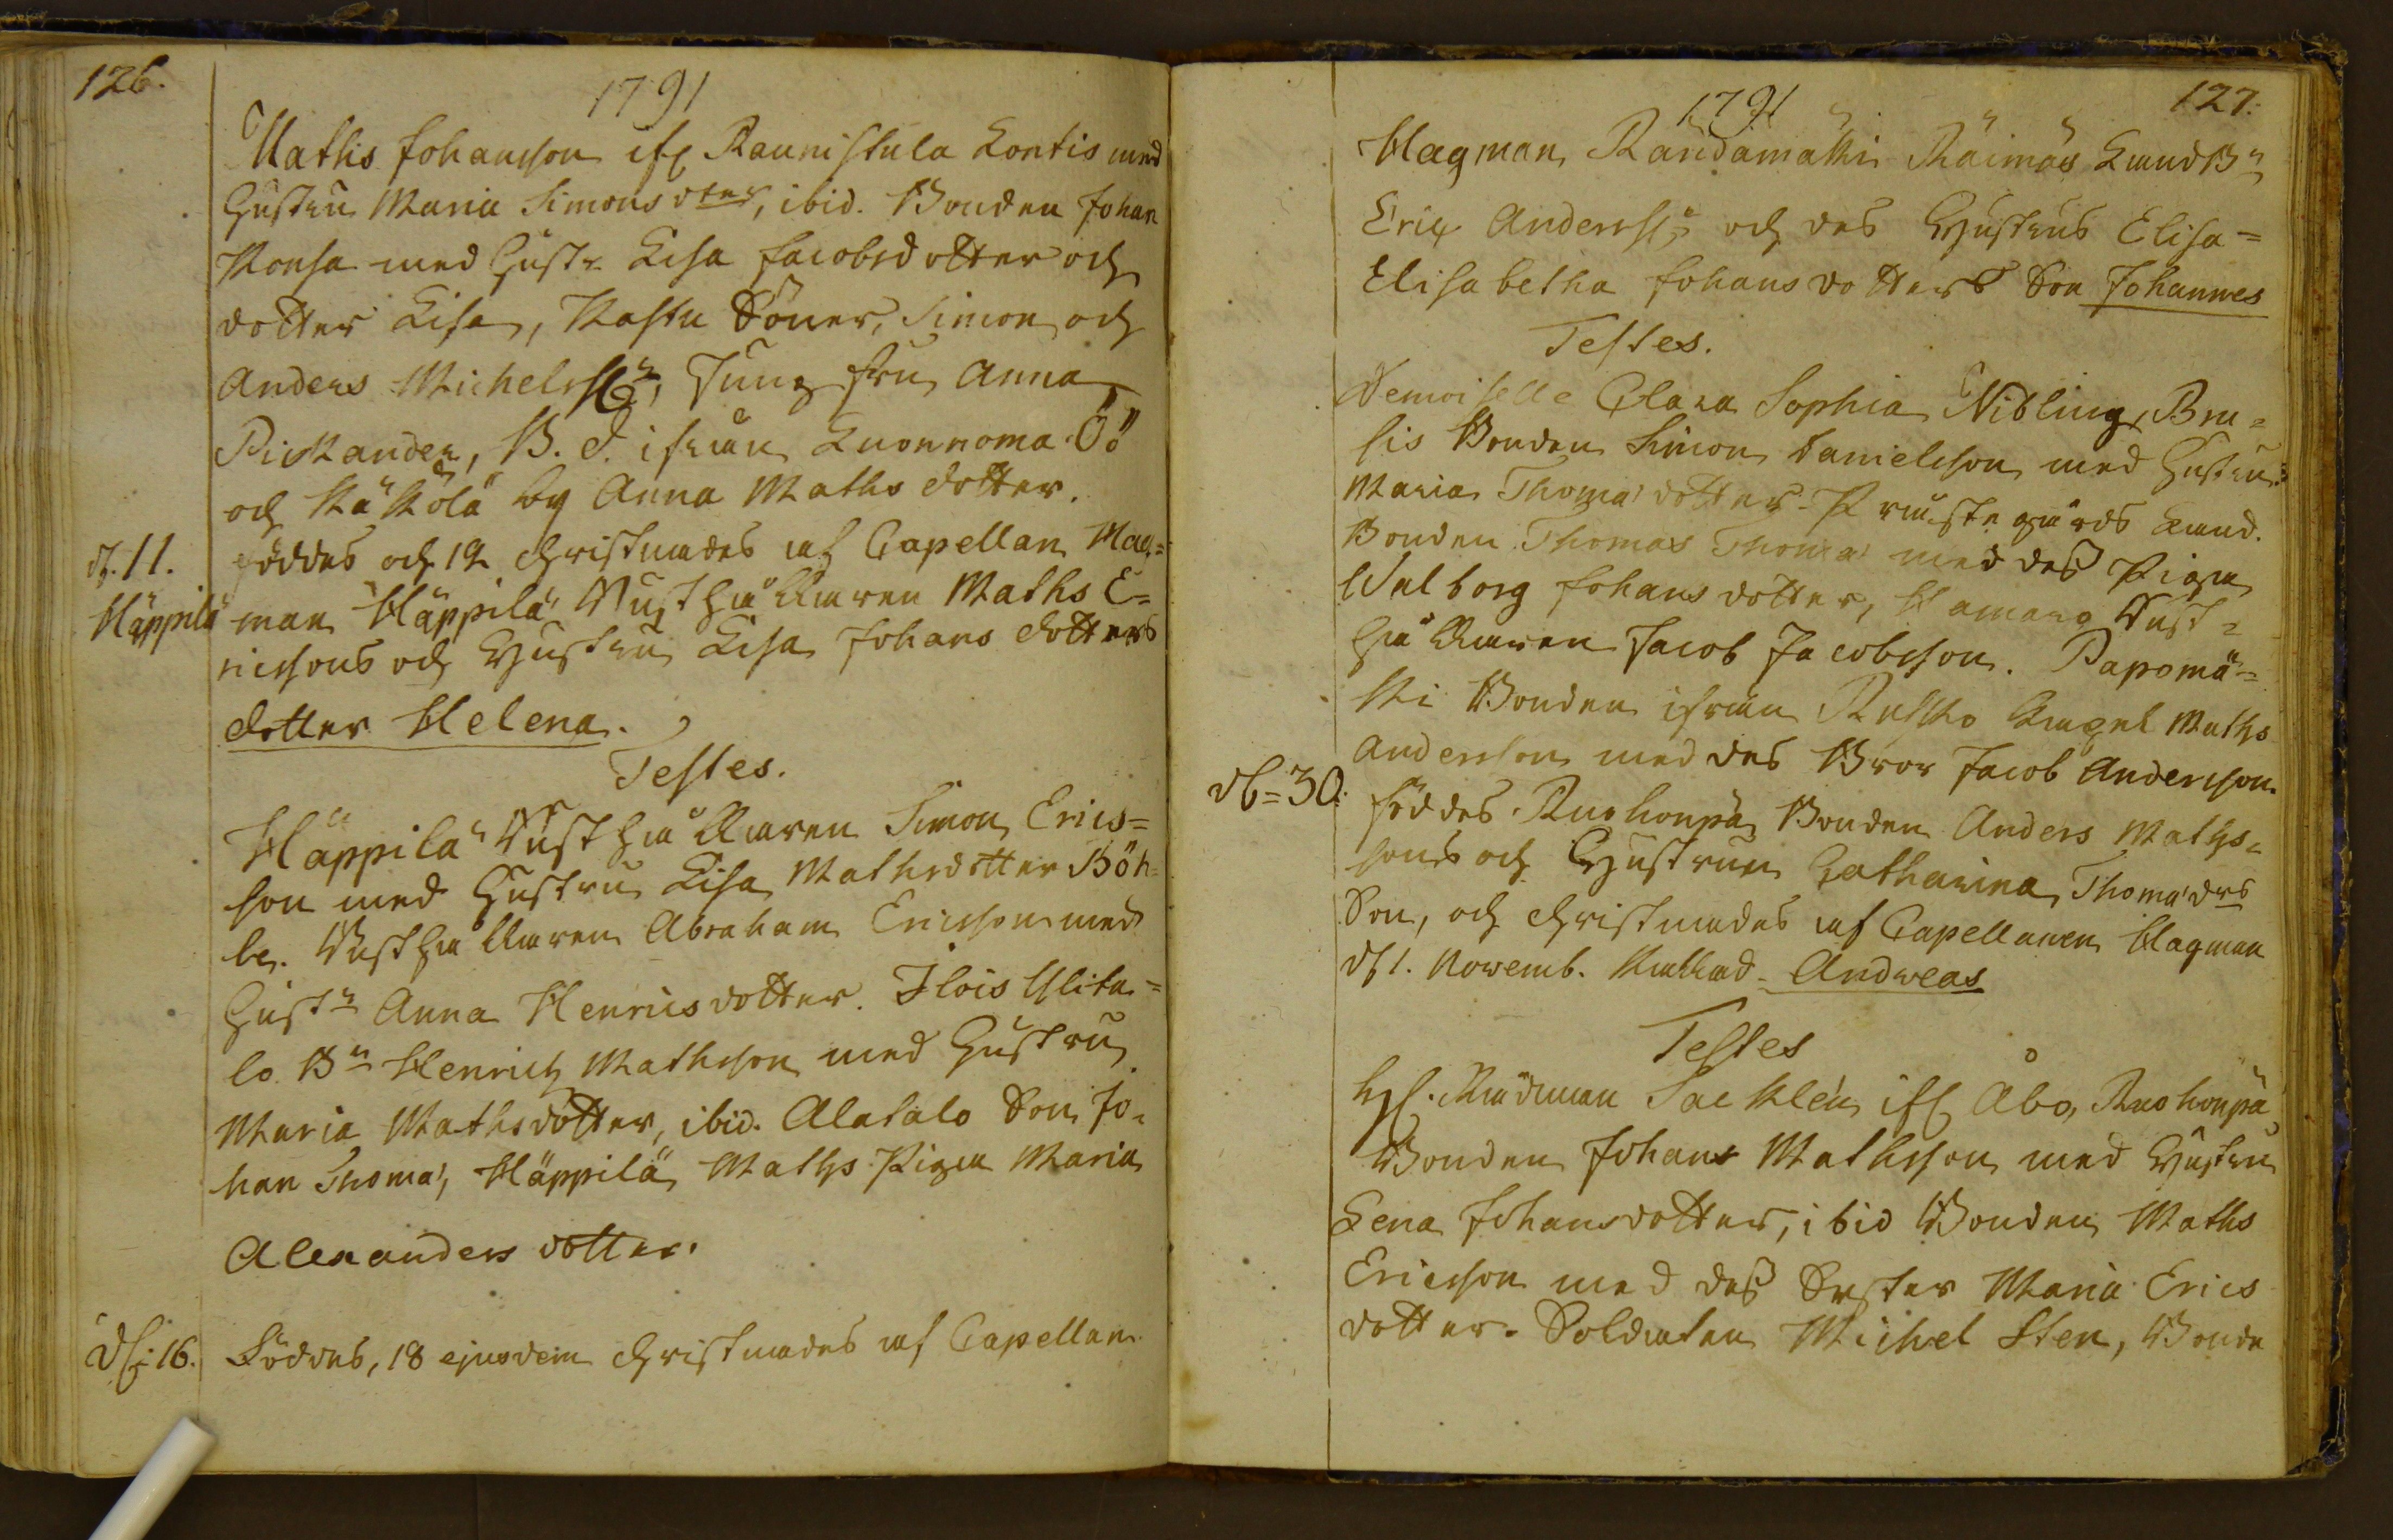 126.
1791
Maths Johansson ifr. Raunistula Kortis med
Hustru Maria Simons dter, ibid. Bonden Johan
Konsa med Hustr. Lisa Jacobsdotter och
dotter Lisa, Kastu Söner, Simon och
Anders Michelss:r, Jungfru Anna
Pickander, B. d. ifrån Kuonnoma Öö
och Käkölä by Anna Maths dotter.
d. 11.
föddes och 12 christnades af Capellan Hag=
Häppilä
man Häppilä Rusthållaren Maths E=
ricssons och Hustru Lisa Johans dotters
dotter Helena.
Testes.
Häppilä Rusthållaren Simon Erics=
son med Hustru Lisa Mathsdotter Böh=
le. Rusthållaren Abraham Ericsson med
Hustr Anna Henricsdotter. Ilois Ylita=
lo Bn Henrich Mathsson med Hustru
Maria Mathsdotter, ibid. Alatalo Son Jo=
han Thoma', Häppilä Maths Pigan Maria
Alexanders dotter.
d. 16.
Föddes, 18 ejusdem christnades af Capellan
127.
1791
Hagman Randamäki Räimäs LandBn
Eric Anderss:s och des Hustrus Elisa=
Elisabetha Johansdotters Son Johannes
Testes.
Demoiselle Clara Sophia Nibling, Bru=
sis Bonden Simon Danielsson med Hustru
Maria Thoma' dotter. Prästegårds Land.
Bonden Thomas Thoma' med des Pigan
Walborg Johans dotter, Hamarö Rust=
hållaren Jacob Jacobsson. Papomä=
ki Bonden ifrån Rusko Capel Maths
Andersson med des Bror Jacob Andersson.
d. 30.
föddes Ruohonpä Bonden Anders Maths=
sons och Hustrun Catharina Thoma'drs
Son, och christnades af Capellanen Hagman
d. 1. Novemb. Kallad Andreas
Testes
H. Rådman Sacklén ifr. Åbo, Ruohonpä
Bonden Johans Mathsson med Hustru
Lena Johansdotter, ibid Bonden Maths
Ericsson med des Syster Maria Erics
dotter. Soldaten Michel Sten, Bonde